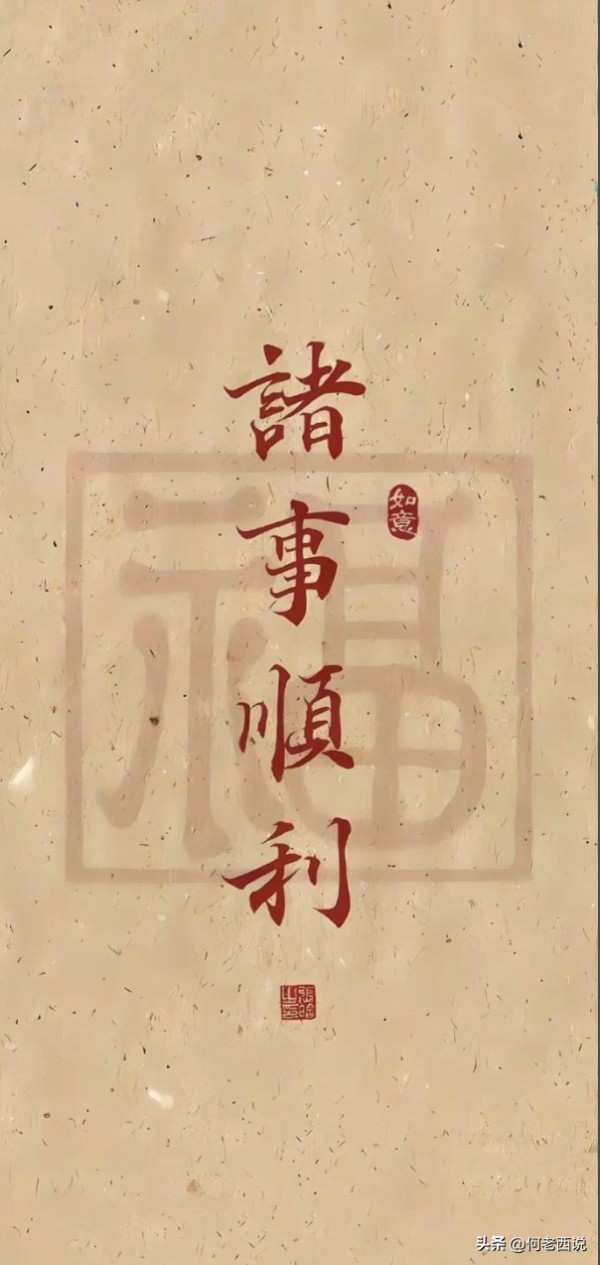 諸事順利
如意
福
头条 @何老西说